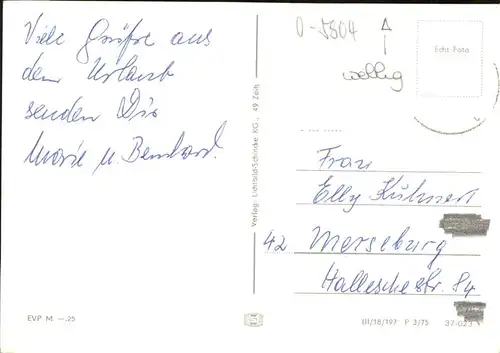 Viele Grüße aus
dem Urlaub
senden Dir
Marie u. Bernhard.
EVP M —.25
Verlag: Lichtbild-Schincke KG., 49 Zeitz
0-5804
wellig
Echt Foto
Frau
Elly Kühnert
42 Merseburg
Hallesche Str. 84
III/18/197 P 3/75 37-023